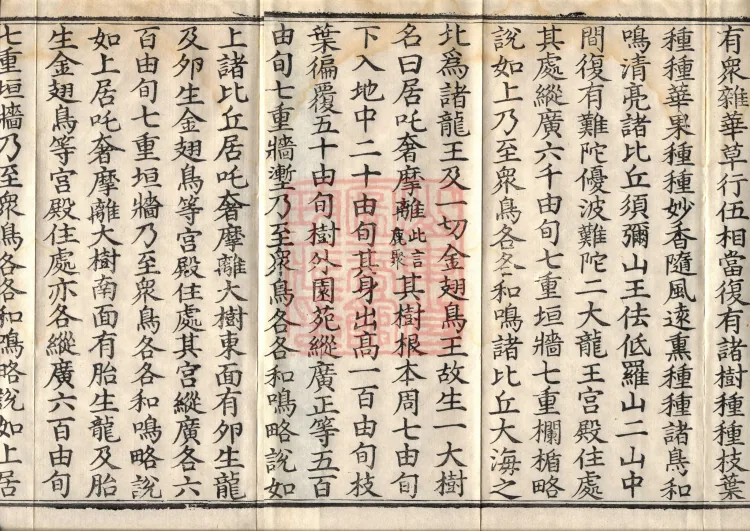 有衆雜華草行伍相當復有諸樹種種枝葉
種種華果種種妙香隨風遠熏種種諸鳥和
鳴清亮諸比丘須彌山王佉低羅山二山中
間復有難陀優波難陀二大龍王宮殿住處
其處縱廣六千由旬七重垣牆七重欄楯略
說如上乃至衆鳥各各和鳴諸比丘大海之
北爲諸龍王及一切金翅鳥王故生一大樹
名曰居吒奢摩離此言鹿聚其樹根本周七由旬
下入地中二十由旬其身出髙一百由旬枝
葉徧覆五十由旬樹外園苑縱廣正等五百
由旬七重牆壍乃至衆鳥各各和鳴略說如
上諸比丘居吒奢摩離大樹東面有卵生龍
及卵生金翅鳥等宮殿住處其宮縱廣各六
百由旬七重垣牆乃至衆鳥各各和鳴略說
如上居吒奢摩離大樹南面有胎生龍及胎
生金翅鳥等宮殿住處亦各縱廣六百由旬
七重垣牆乃至衆鳥各各和鳴略說如上居